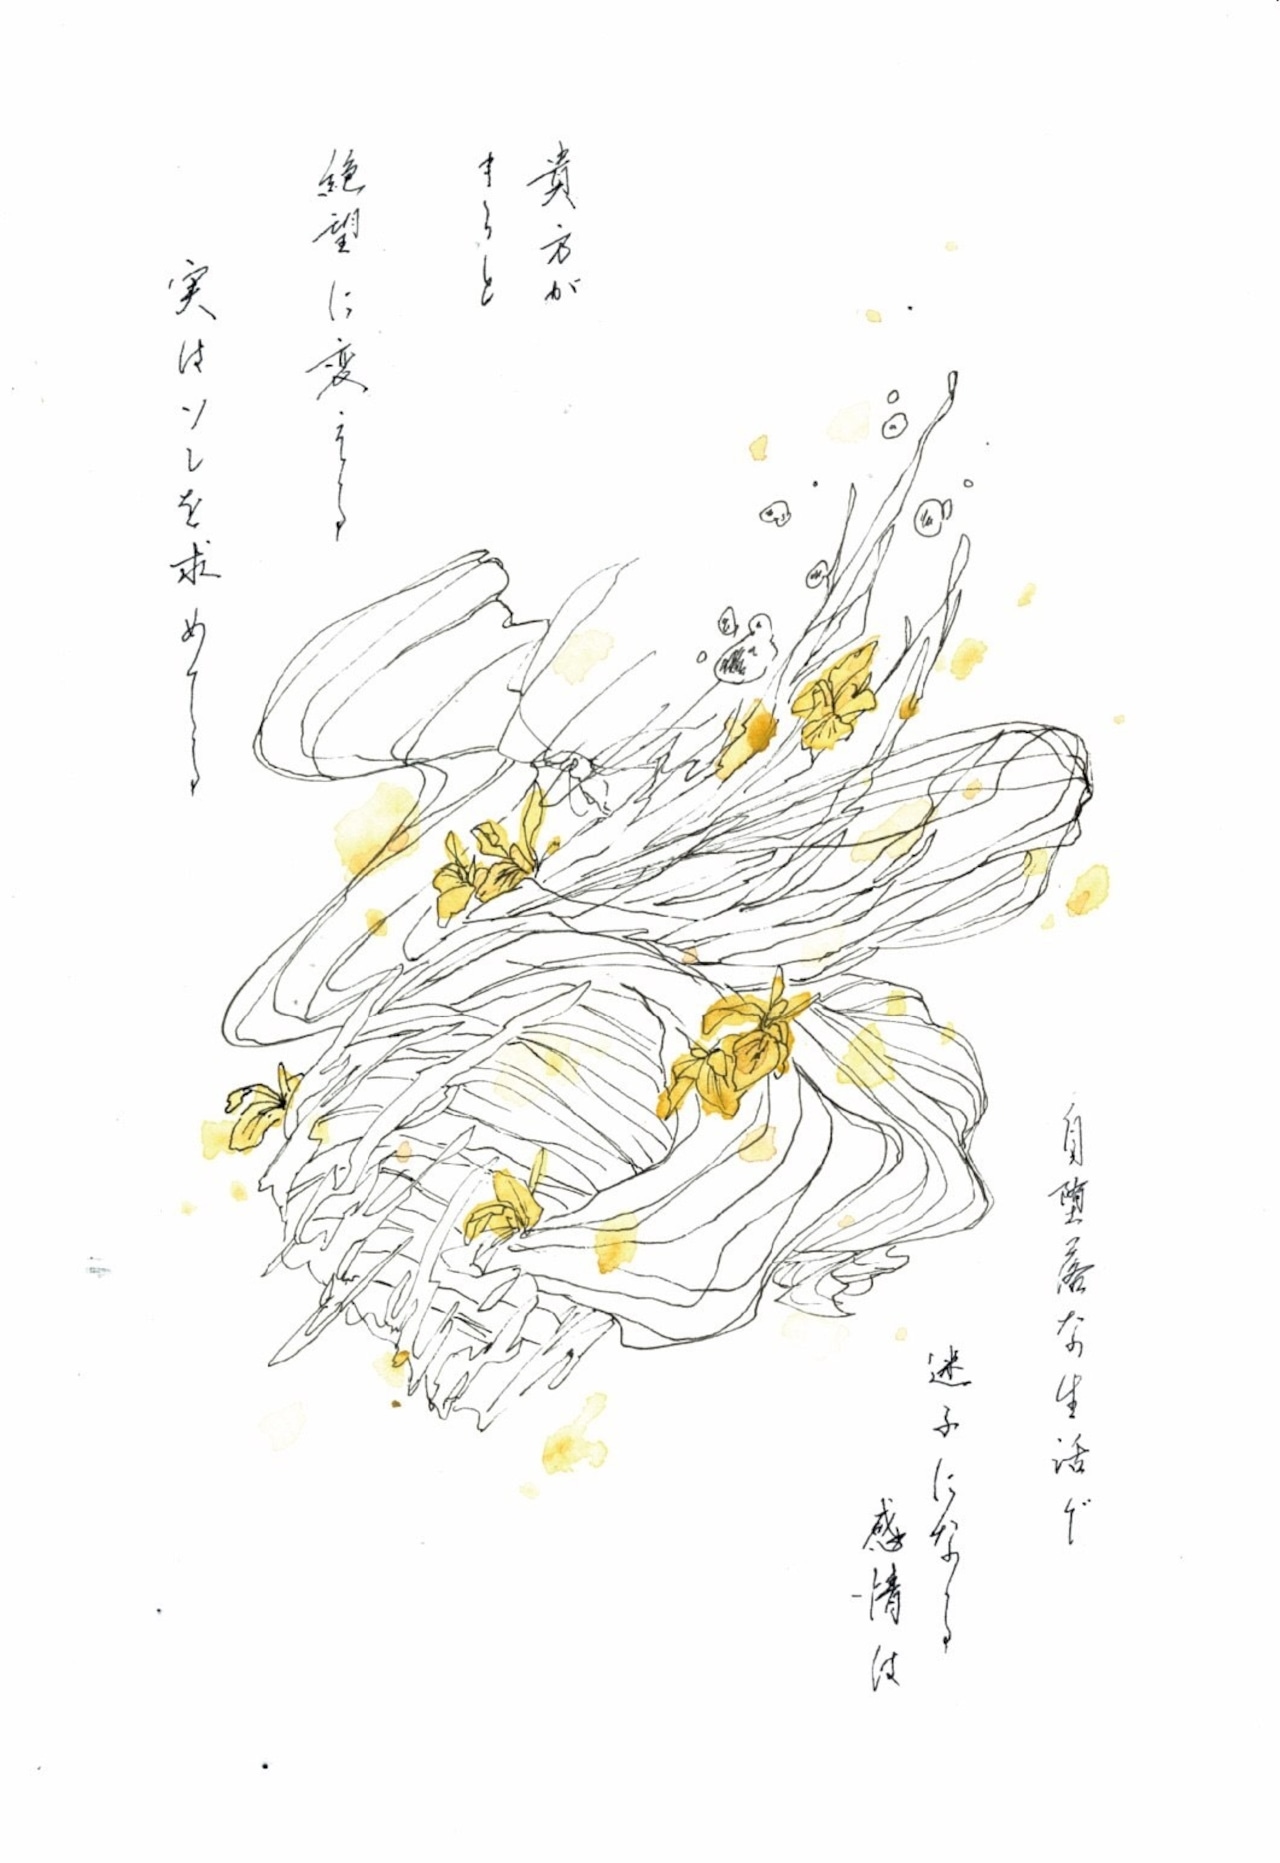 自堕落な生活で
迷子になる
感情は
貴方が
絶望に変える
実はソレを求めてる